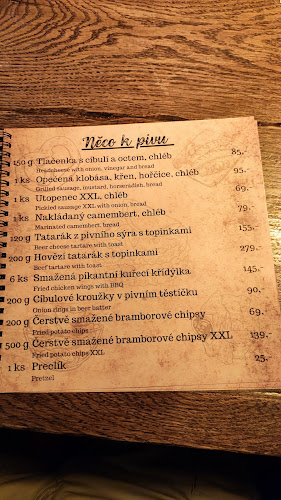 Něco k pivu
150 g Tlačenka s cibulí a octem, chléb 85,-
Headcheese with onion, vinegar and bread
1 ks Opečená klobása, křen, hořčice, chléb 95,-
Grilled sausage, mustard, horseradish, bread
1 ks Utopenec XXL, chléb 69,-
Pickled sausage XXL with onion, bread
1 ks Nakládaný camembert, chléb 79,-
Marinated camembert, bread
120 g Tatarák z pivního sýra s topinkami 155,-
Beer cheese tartare with toast
200 g Hovězí tatarák s topinkami 279,-
Beef tartare with toast
6 ks Smažená pikantní kuřecí křidýlka 145,-
Fried chicken wings with BBQ
200 g Cibulové kroužky v pivním těstíčku 90,-
Onion rings in beer batter
200 g Čerstvě smažené bramborové chipsy 69,-
Fried potato chips
500 g Čerstvě smažené bramborové chipsy XXL 139,-
Fried potato chips XXL
1 ks Preclík 25,-
Pretzel